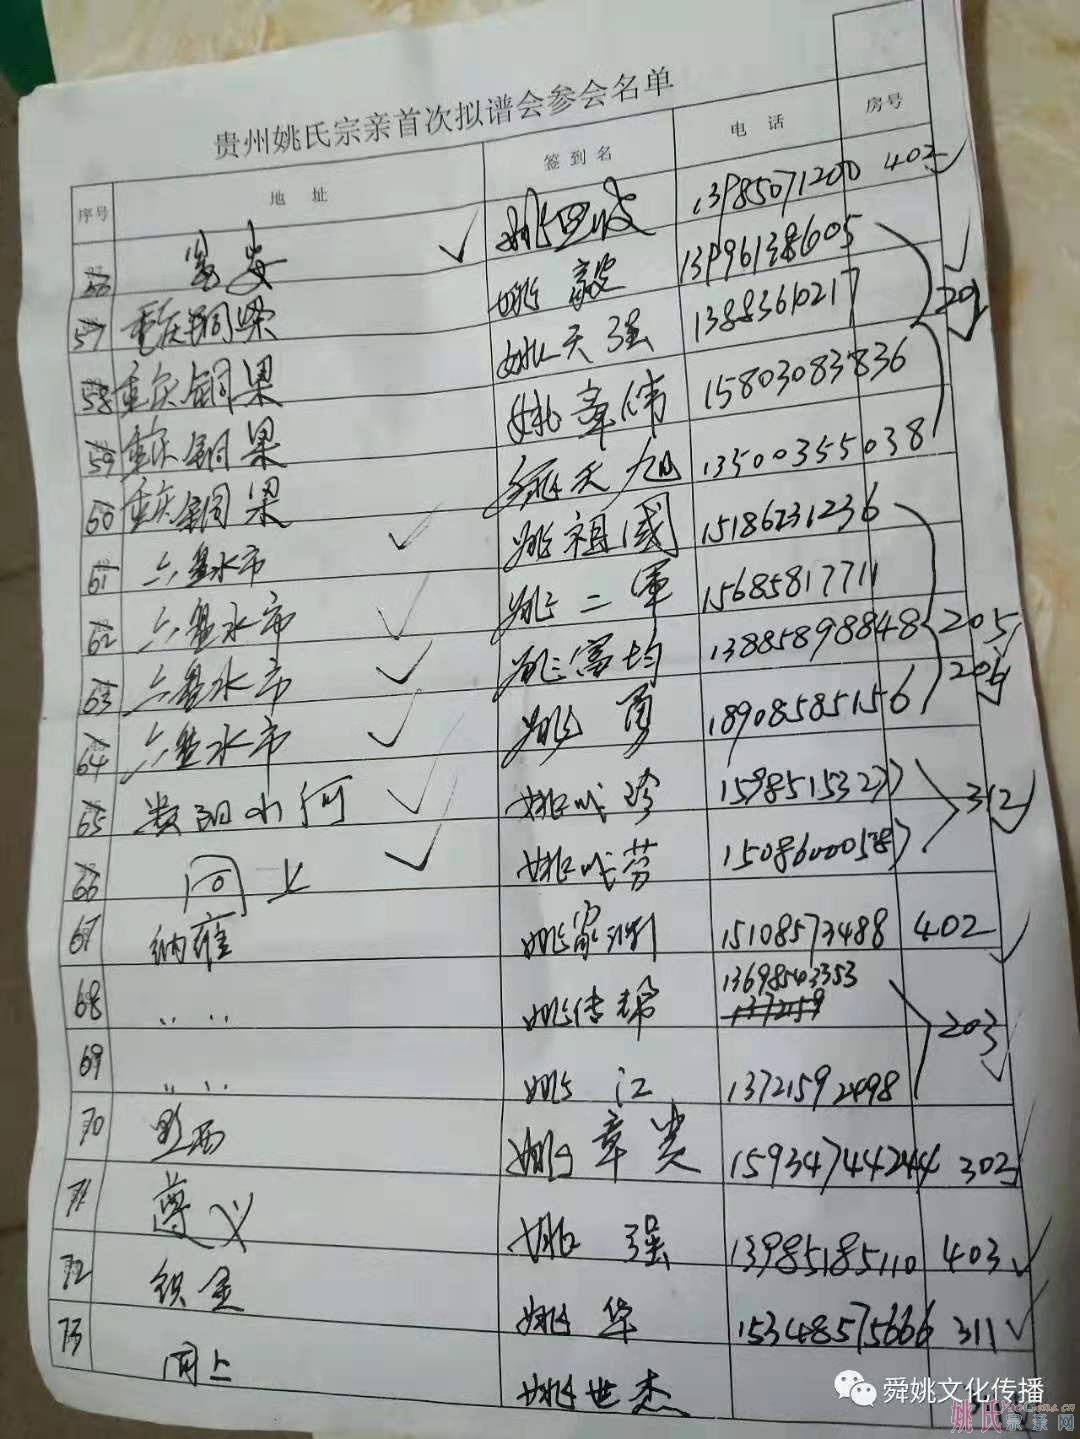 贵州姚氏宗亲首次拟谱会参会名单
序号 地 址 签 到 名 电 话 房号
13985071200 402
57 重庆铜梁 姚 毅 13996138605
58 重庆铜梁 姚天强 13883610217 202
59 重庆铜梁 姚章伟 15803083836
60 重庆铜梁 姚天旭 13500355038
61 六盘水市 姚祖國 15186231236
62 六盘水市 姚二軍 15685817711
63 六盘水市 姚富均 13885898848 205
64 六盘水市 姚 勇 18908585156 204
65 姚 珍 312
66 同上 姚 芬
67 纳雍 姚家 15108573488 402
68 〃 〃 姚传 13698543353
203
69 〃 〃 姚 江 13721592498
70 黔西 姚章贵 15934744244 302
71 遵义 姚 强 13985185110 403
72 织金 姚 华 15348575666 311
73 同上 姚世杰
舜姚文化传播
姚氏宗亲网